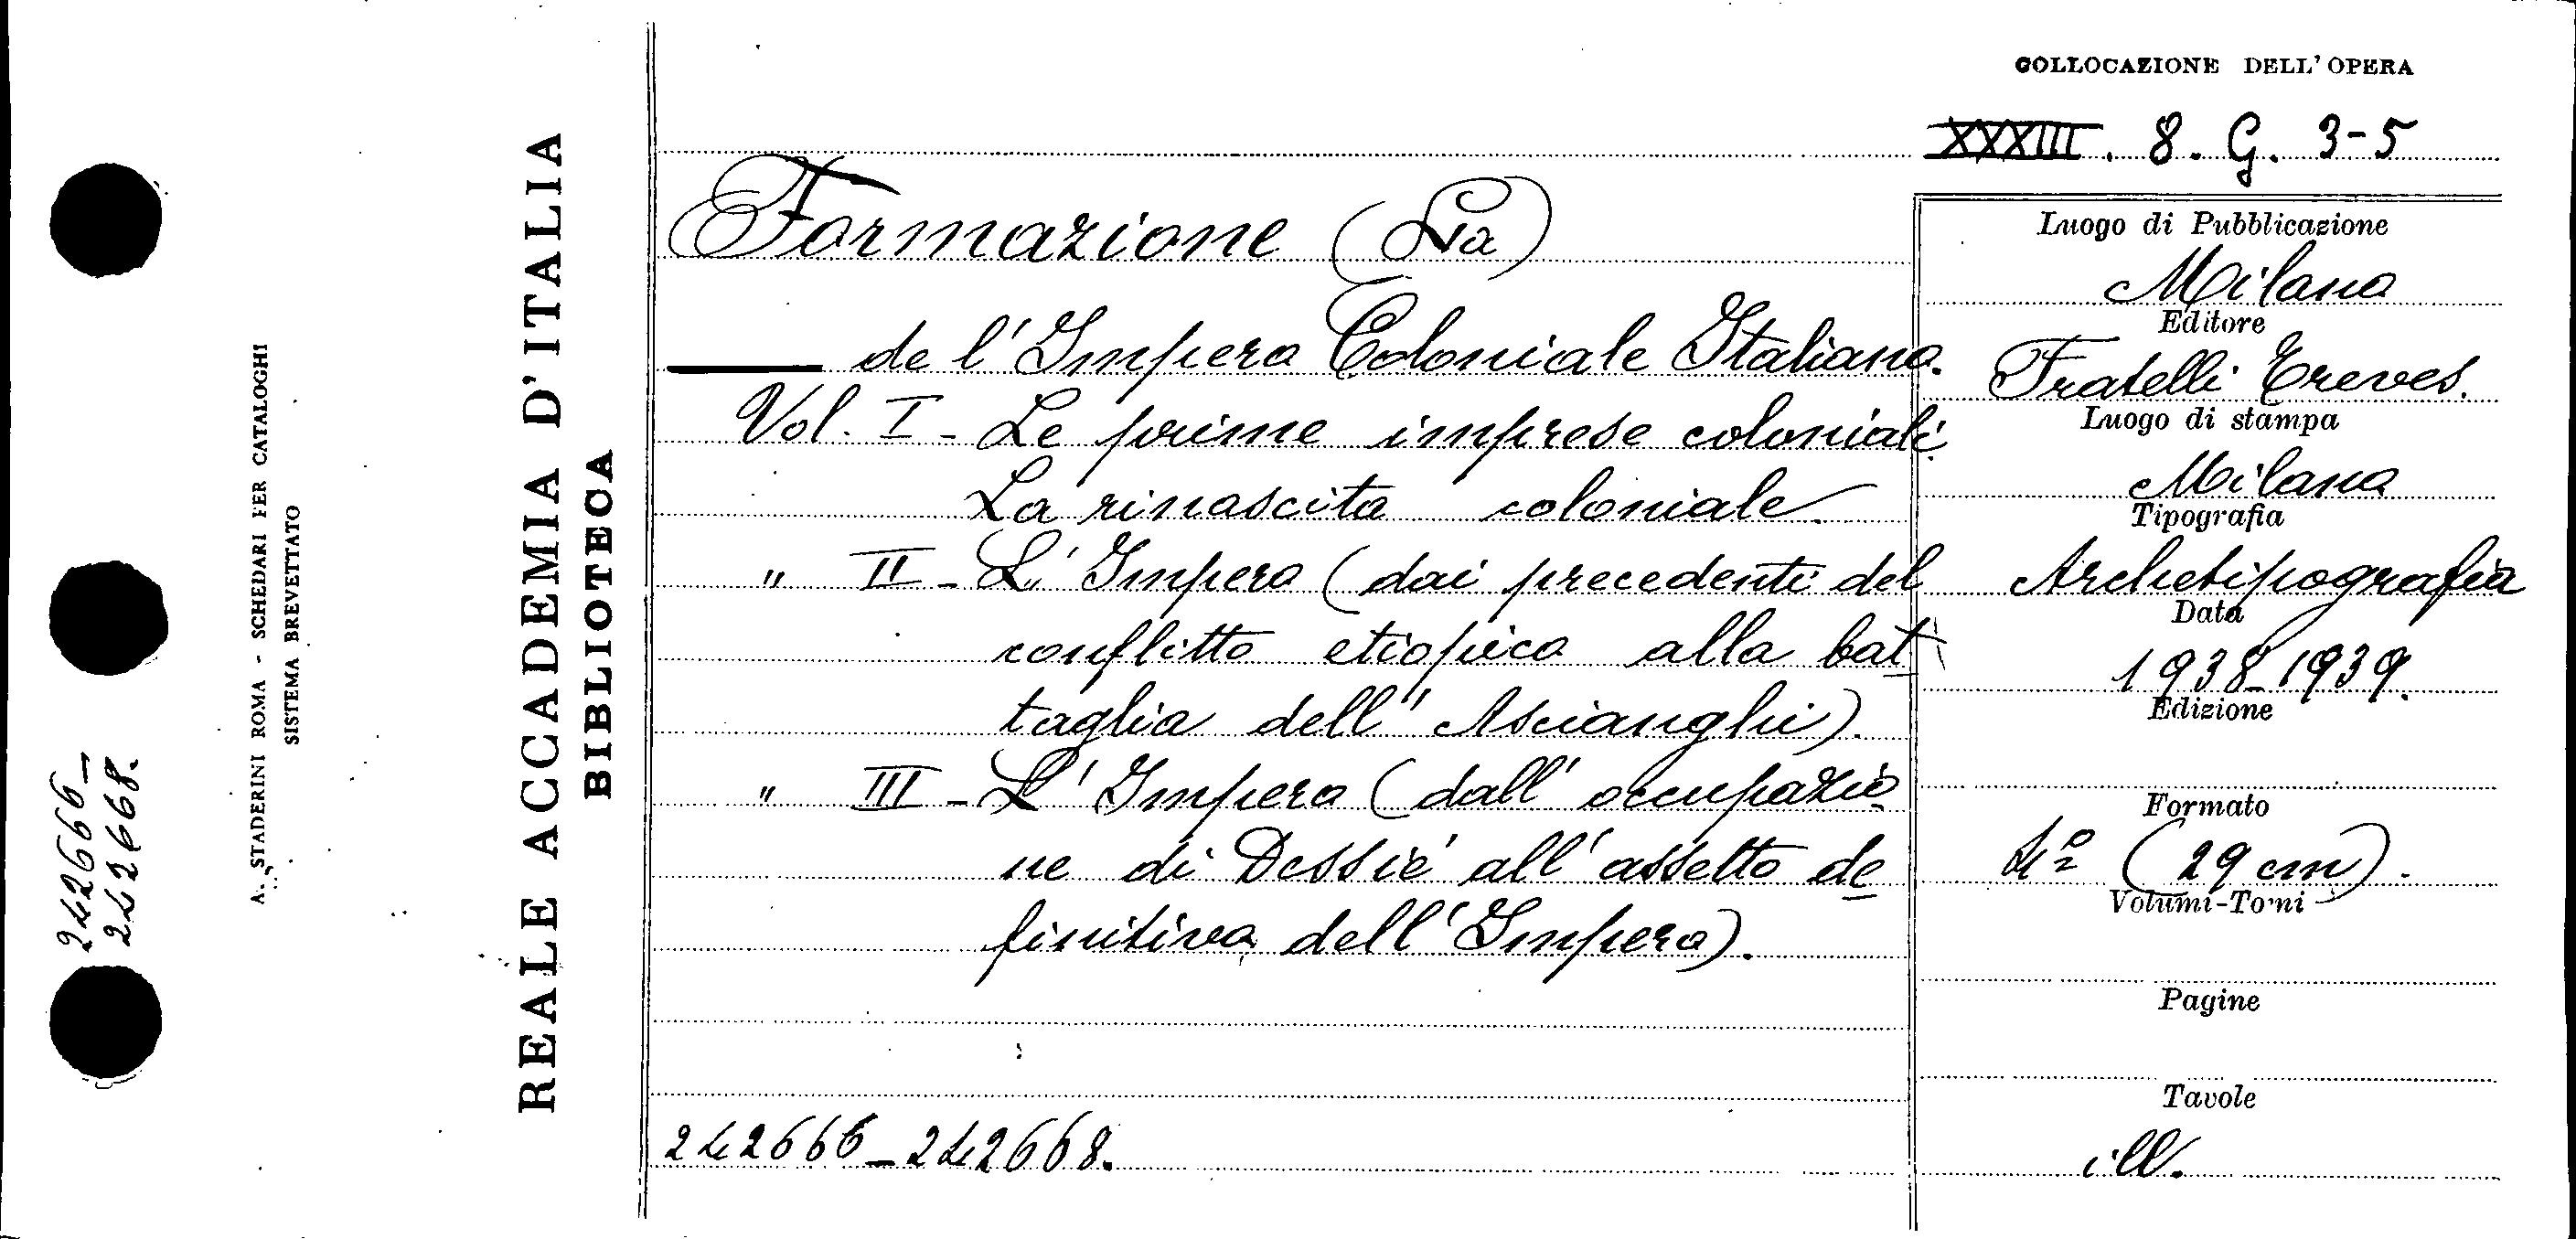 COLLOCAZIONE DELL'OPERA
XXXIII. 8. G. 3-5
Formazione (La)
— de l'Impero Coloniale Italiano.
Vol. I - Le prime imprese coloniali.
La rinascita coloniale.
" II - L'Impero (dai precedenti del
conflitto etiopico alla bat
taglia dell'Ascianghi).
" III - L'Impero (dall'occupazio
ne di Dessié all'assetto de
finitivo dell'Impero).
242666-242668.
Luogo di Pubblicazione
Milano
Editore
Fratelli Treves.
Luogo di stampa
Milano
Tipografia
Archetipografia
Data
1938-1939.
Edizione
Formato
4º (29 cm).
Volumi-Tomi
Pagine
Tavole
ill.
REALE ACCADEMIA D'ITALIA
BIBLIOTECA
A. STADERINI ROMA - SCHEDARI PER CATALOGHI
SISTEMA BREVETTATO
242666-
242668.